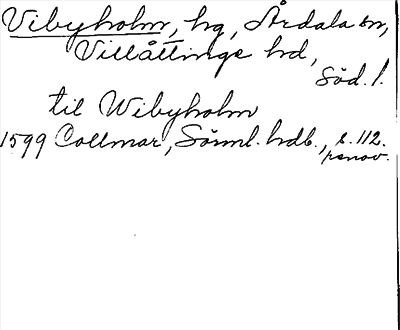 Vibyholm, hg, Årdala sn,
Villåttinge hrd,
Söd. l.
til Wibyholm
1599 Collmar, Sörml. hdb., s. 112.
renov.